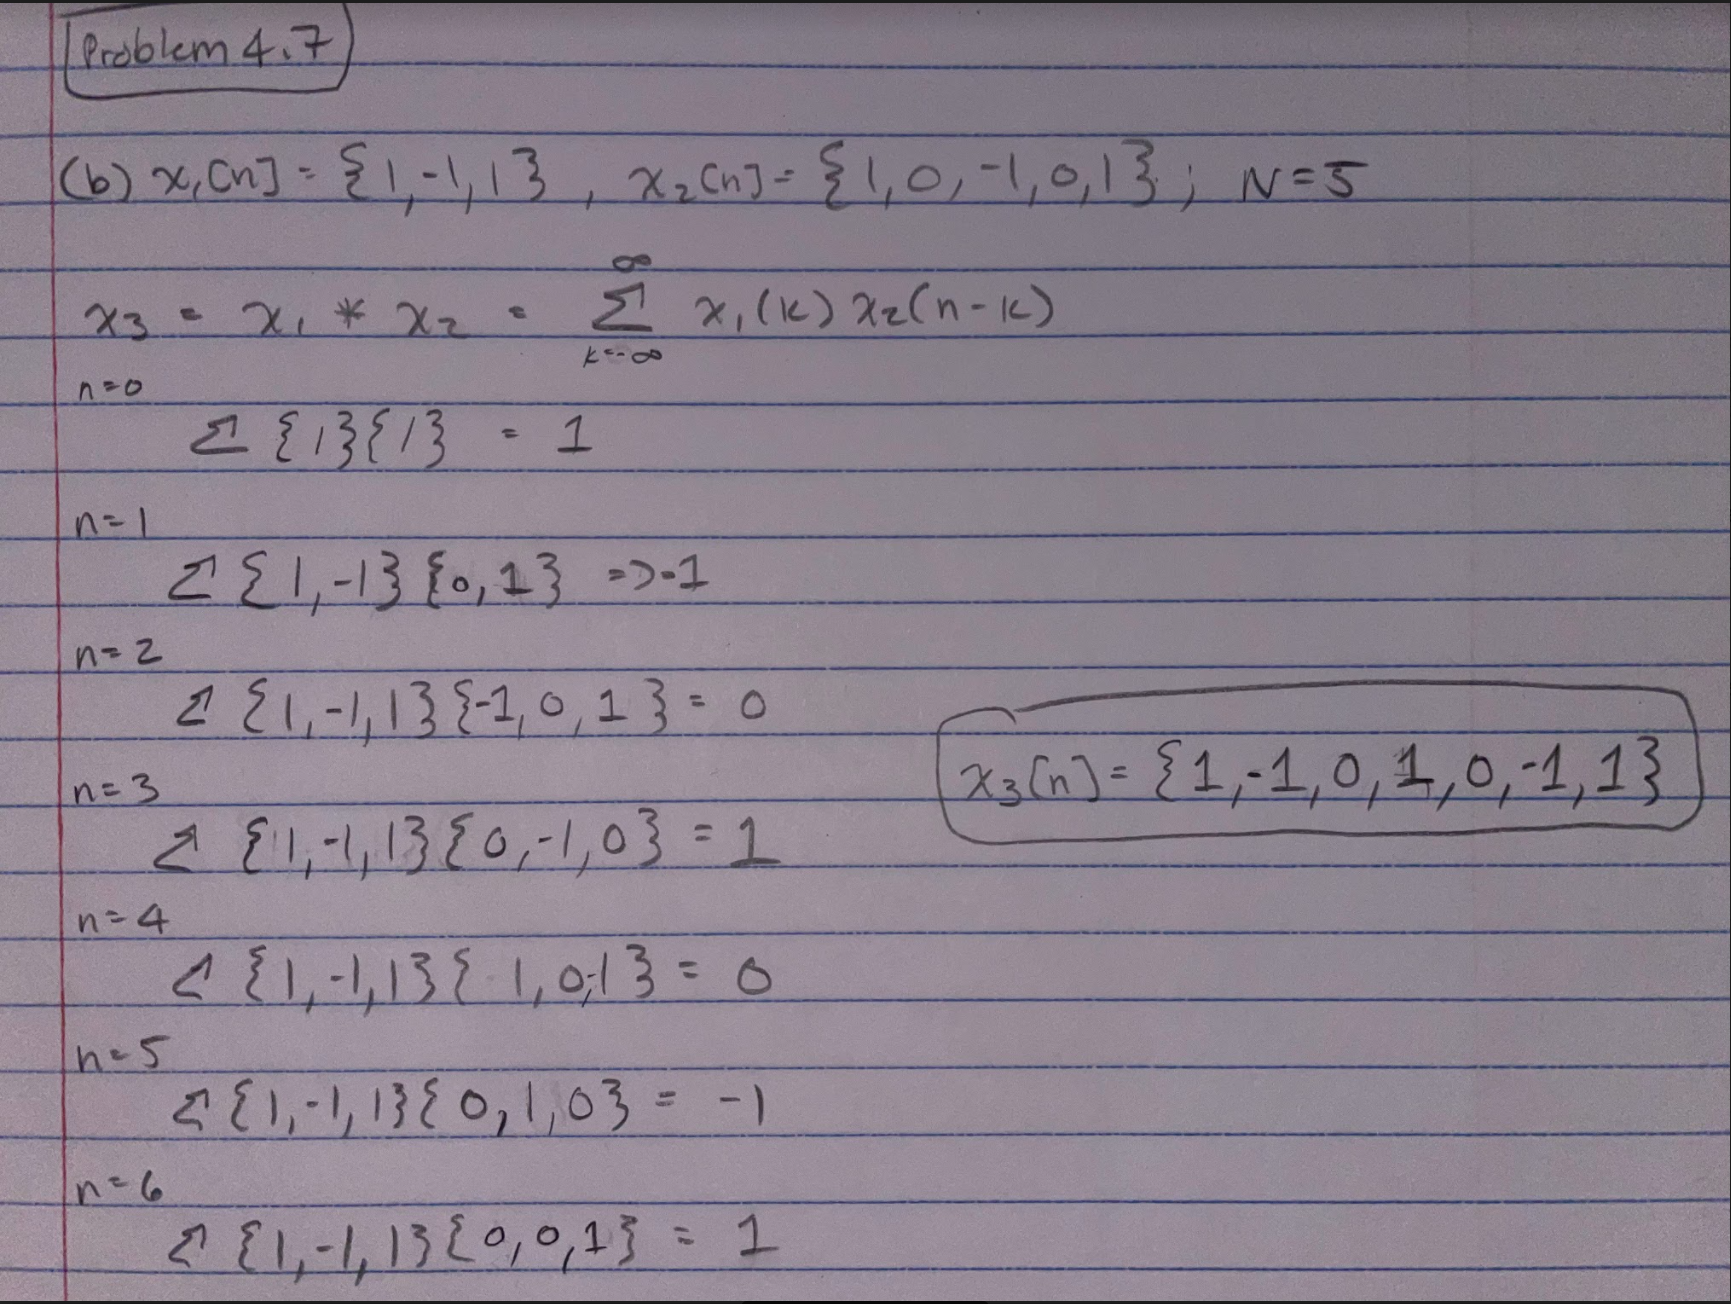 Problem 4.7
(b) x₁[n] = {1,-1,1} , x₂[n] = {1,0,-1,0,1} ; N=5
∞
x₃ = x₁ * x₂ = Σ x₁(k) x₂(n-k)
k=-∞
n=0
Σ {1}{1} = 1
n=1
Σ {1,-1}{0,1} => -1
n=2
Σ {1,-1,1}{-1,0,1} = 0
x₃[n] = {1,-1,0,1,0,-1,1}
n=3
Σ {1,-1,1}{0,-1,0} = 1
n=4
Σ {1,-1,1}{1,0,-1} = 0
n=5
Σ {1,-1,1}{0,1,0} = -1
n=6
Σ {1,-1,1}{0,0,1} = 1